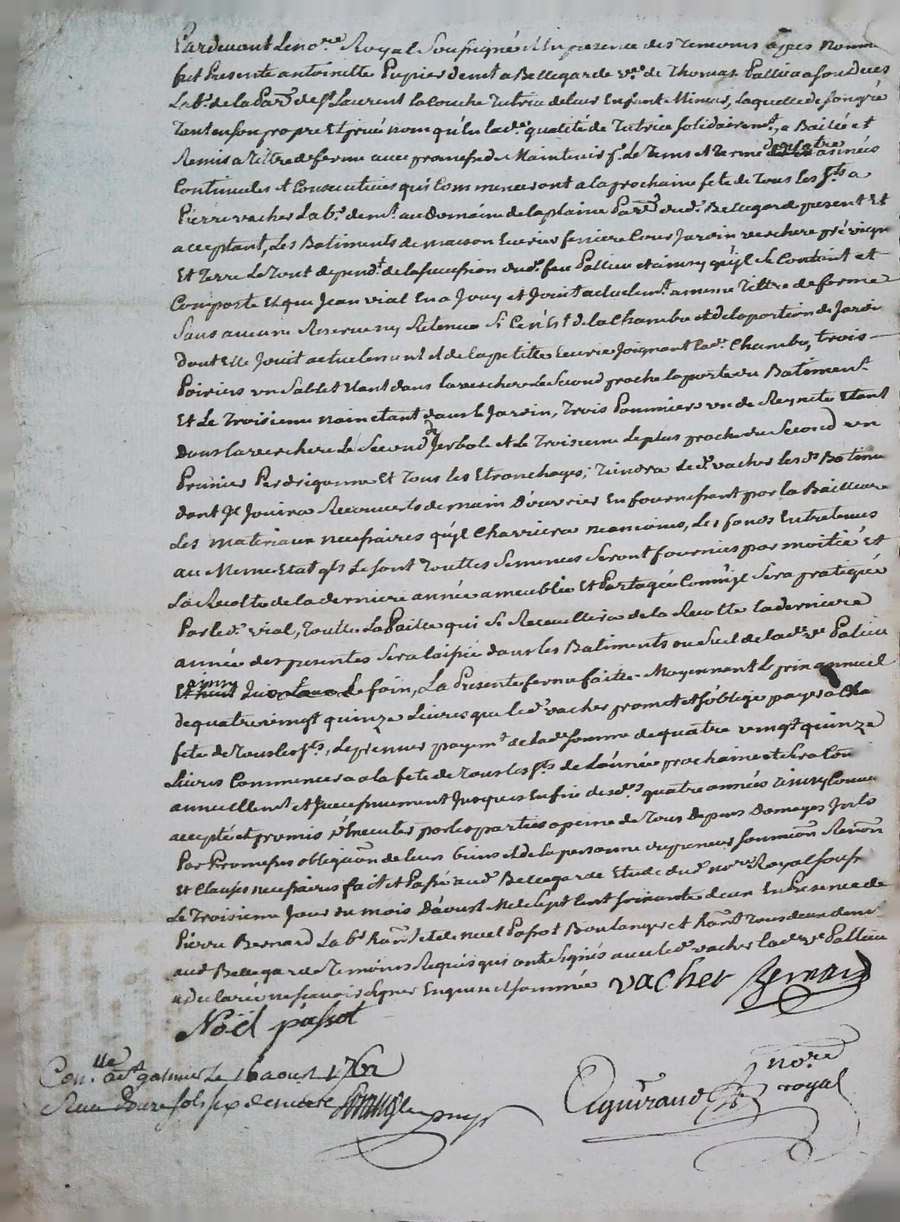 Pardevant Le no.re Royal Soussigné Et En presence des temoins apres nommé
fut Presente antoinette Pupier demt a Bellegarde v.ve de Thomas Palliu a son deces
Lab.r de la Par.se de St Laurent la Conche tutrice de leurs Enfants Mineurs, laquelle de son gré
tant en son propre Et privé nom qu'En lad.e qualité de tutrice solidairem.t, a Bailée et
Remis a tittre de ferme avec promesse de Maintenir p.r Le tems et terme de quatre années
Continuelles et Consecutives qui Commenceront a la prochaine fete de Tous les S.ts a
Pierre vacher Lab.r dem.t au Domaine de la plaine Par.se dud. Bellegarde present Et
acceptant, Les Batiments de maison Ecurie feniere Cour Jardin verchere pré vigne
Et Terre Le Tout depend.t de la succession dud. feu Palliu et ainsy qu'il se Contient et
Comporte Et que Jean vial En a Jouy et Jouit actuelem.t a meme tittre de ferme
Sans aucune Reserve ny Retenue Si Ce n'est de la Chambre et de la portion de Jardin
dont Elle Jouit actuelement et de la petitte Ecurie Joignant lad. Chambre, trois
Poiriers un Sablet Etant dans la verchere Le Second proche la porte du Batiment
Et Le Troisieme nain etant dans le Jardin, Trois Pommiers un de Reynette Etant
dans la verchere Le Second de Jerbole et Le Troisieme Le plus proche du Second un
Prunier Perdrigonne Et Tous les Etronchages, Tiendra Led. vacher les d. Batiments
dont Il Jouira Recouverts de main D'ouvrier En fournissant par la Bailleuse
Les materiaux necessaires qu'il Charriera neanmoins, Les fonds Entretenus
au Meme Etat qls Le sont Touttes Semences Seront fournies par moitié et
La Recolte de la derniere année ameublée Et Partagée Comm'il Sera pratiqué
Par led. vial, Toutte La Paille qui Se Recueillira de la Recolte la derniere
année des presentes Sera laissée dans les Batiments ou Suel de lad. v.ve Palliu
ainsy que le foin, La Presente ferme faitte Moyennant Le prix annuel
de quatre vingt quinze Livres que led. vacher promet et s'oblige payer a Cha
fete de Tous les S.ts, Le premier payem.t de lad. somme de quatre vingt quinze
Livres Commencera a la fete de Tous les S.ts de L'année prochaine et Sera Con
annuellem.t et successivement Jusques En fin desd. quatre années ainsy Convenu
accepté et promis Executer par les parties a peine de Tous Depens Domages Jnts
Par Promesses obligãon de leurs biens et de la personne du preneur soumission Renõn
Et Clauses necessaires fait et Passé aud. Bellegarde Etude du d. no.re Royal Soussé
Le Troisieme Jour du mois D'aoust Mil Sept Cent Soixante deux En Presence de
Pierre Bernard Lab.r hant et de noel Passot Boulanger et hant Tous deux dem
aud. Bellegarde Temoins Requis qui ont Signés avec led. vacher lad. v.ve Palliu
a declaré ne scavoir signer Enquise et sommée vacher Bernard
Noël passot
Con.lle a St galmier le 16 aout 1762
Reçu douze sols six deniers
no.re royal